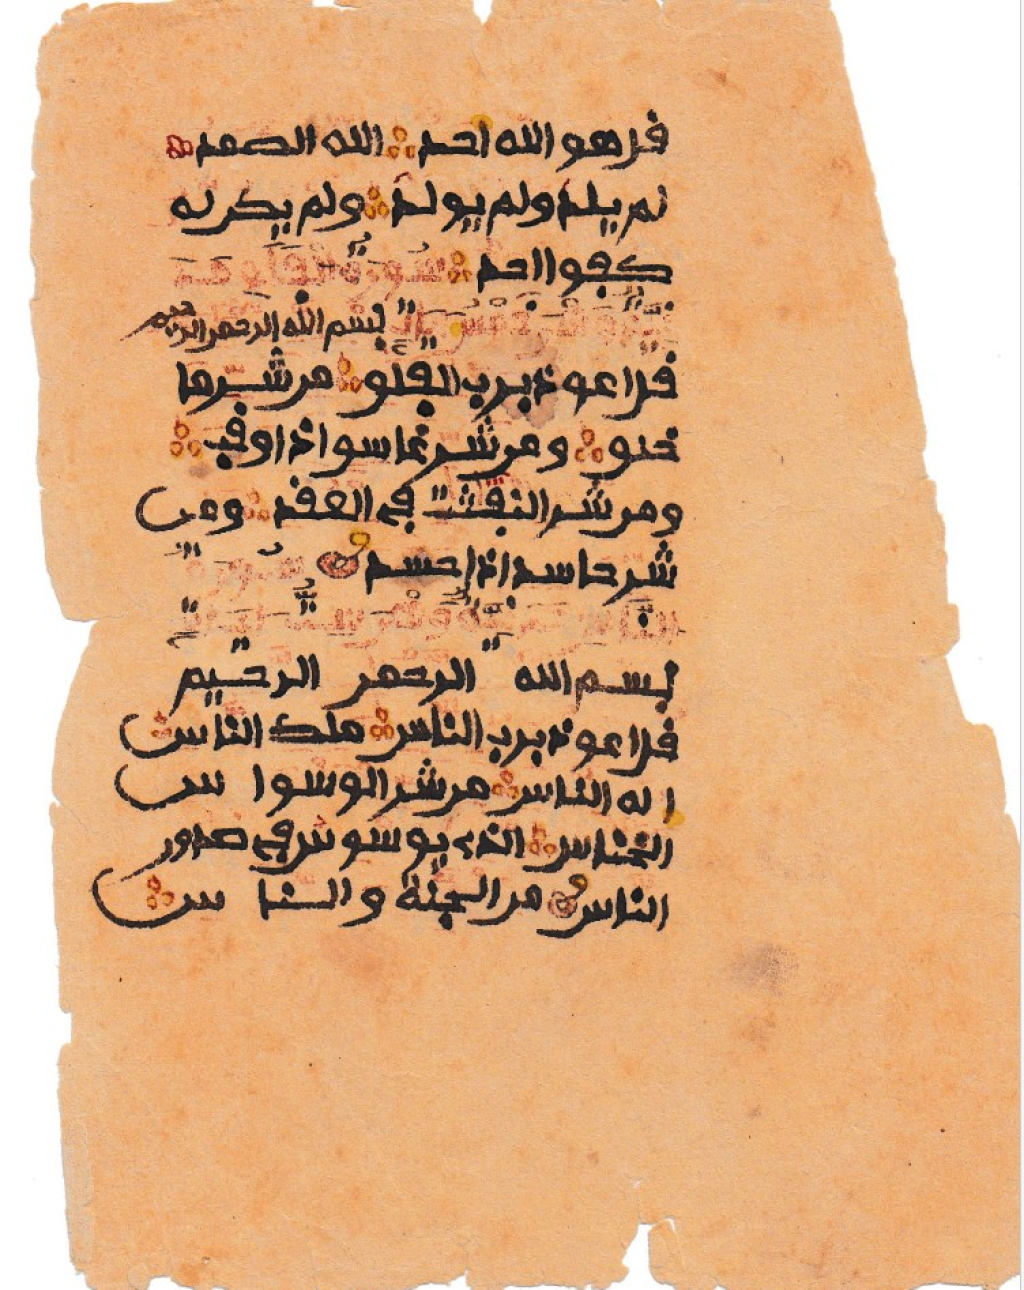 قل هو الله احد الله الصمد
لم يلد ولم يولد ولم يكن له
كفوا احد سورة الفلق
بسم الله الرحمن الرحيم
قل اعوذ برب الفلق من شر ما
خلق ومن شر غاسق اذا وقب
ومن شر النفثت في العقد ومن
شر حاسد اذا حسد سورة
الناس
بسم الله الرحمن الرحيم
قل اعوذ برب الناس ملك الناس
اله الناس من شر الوسواس
الخناس الذي يوسوس في صدور
الناس من الجنة والناس